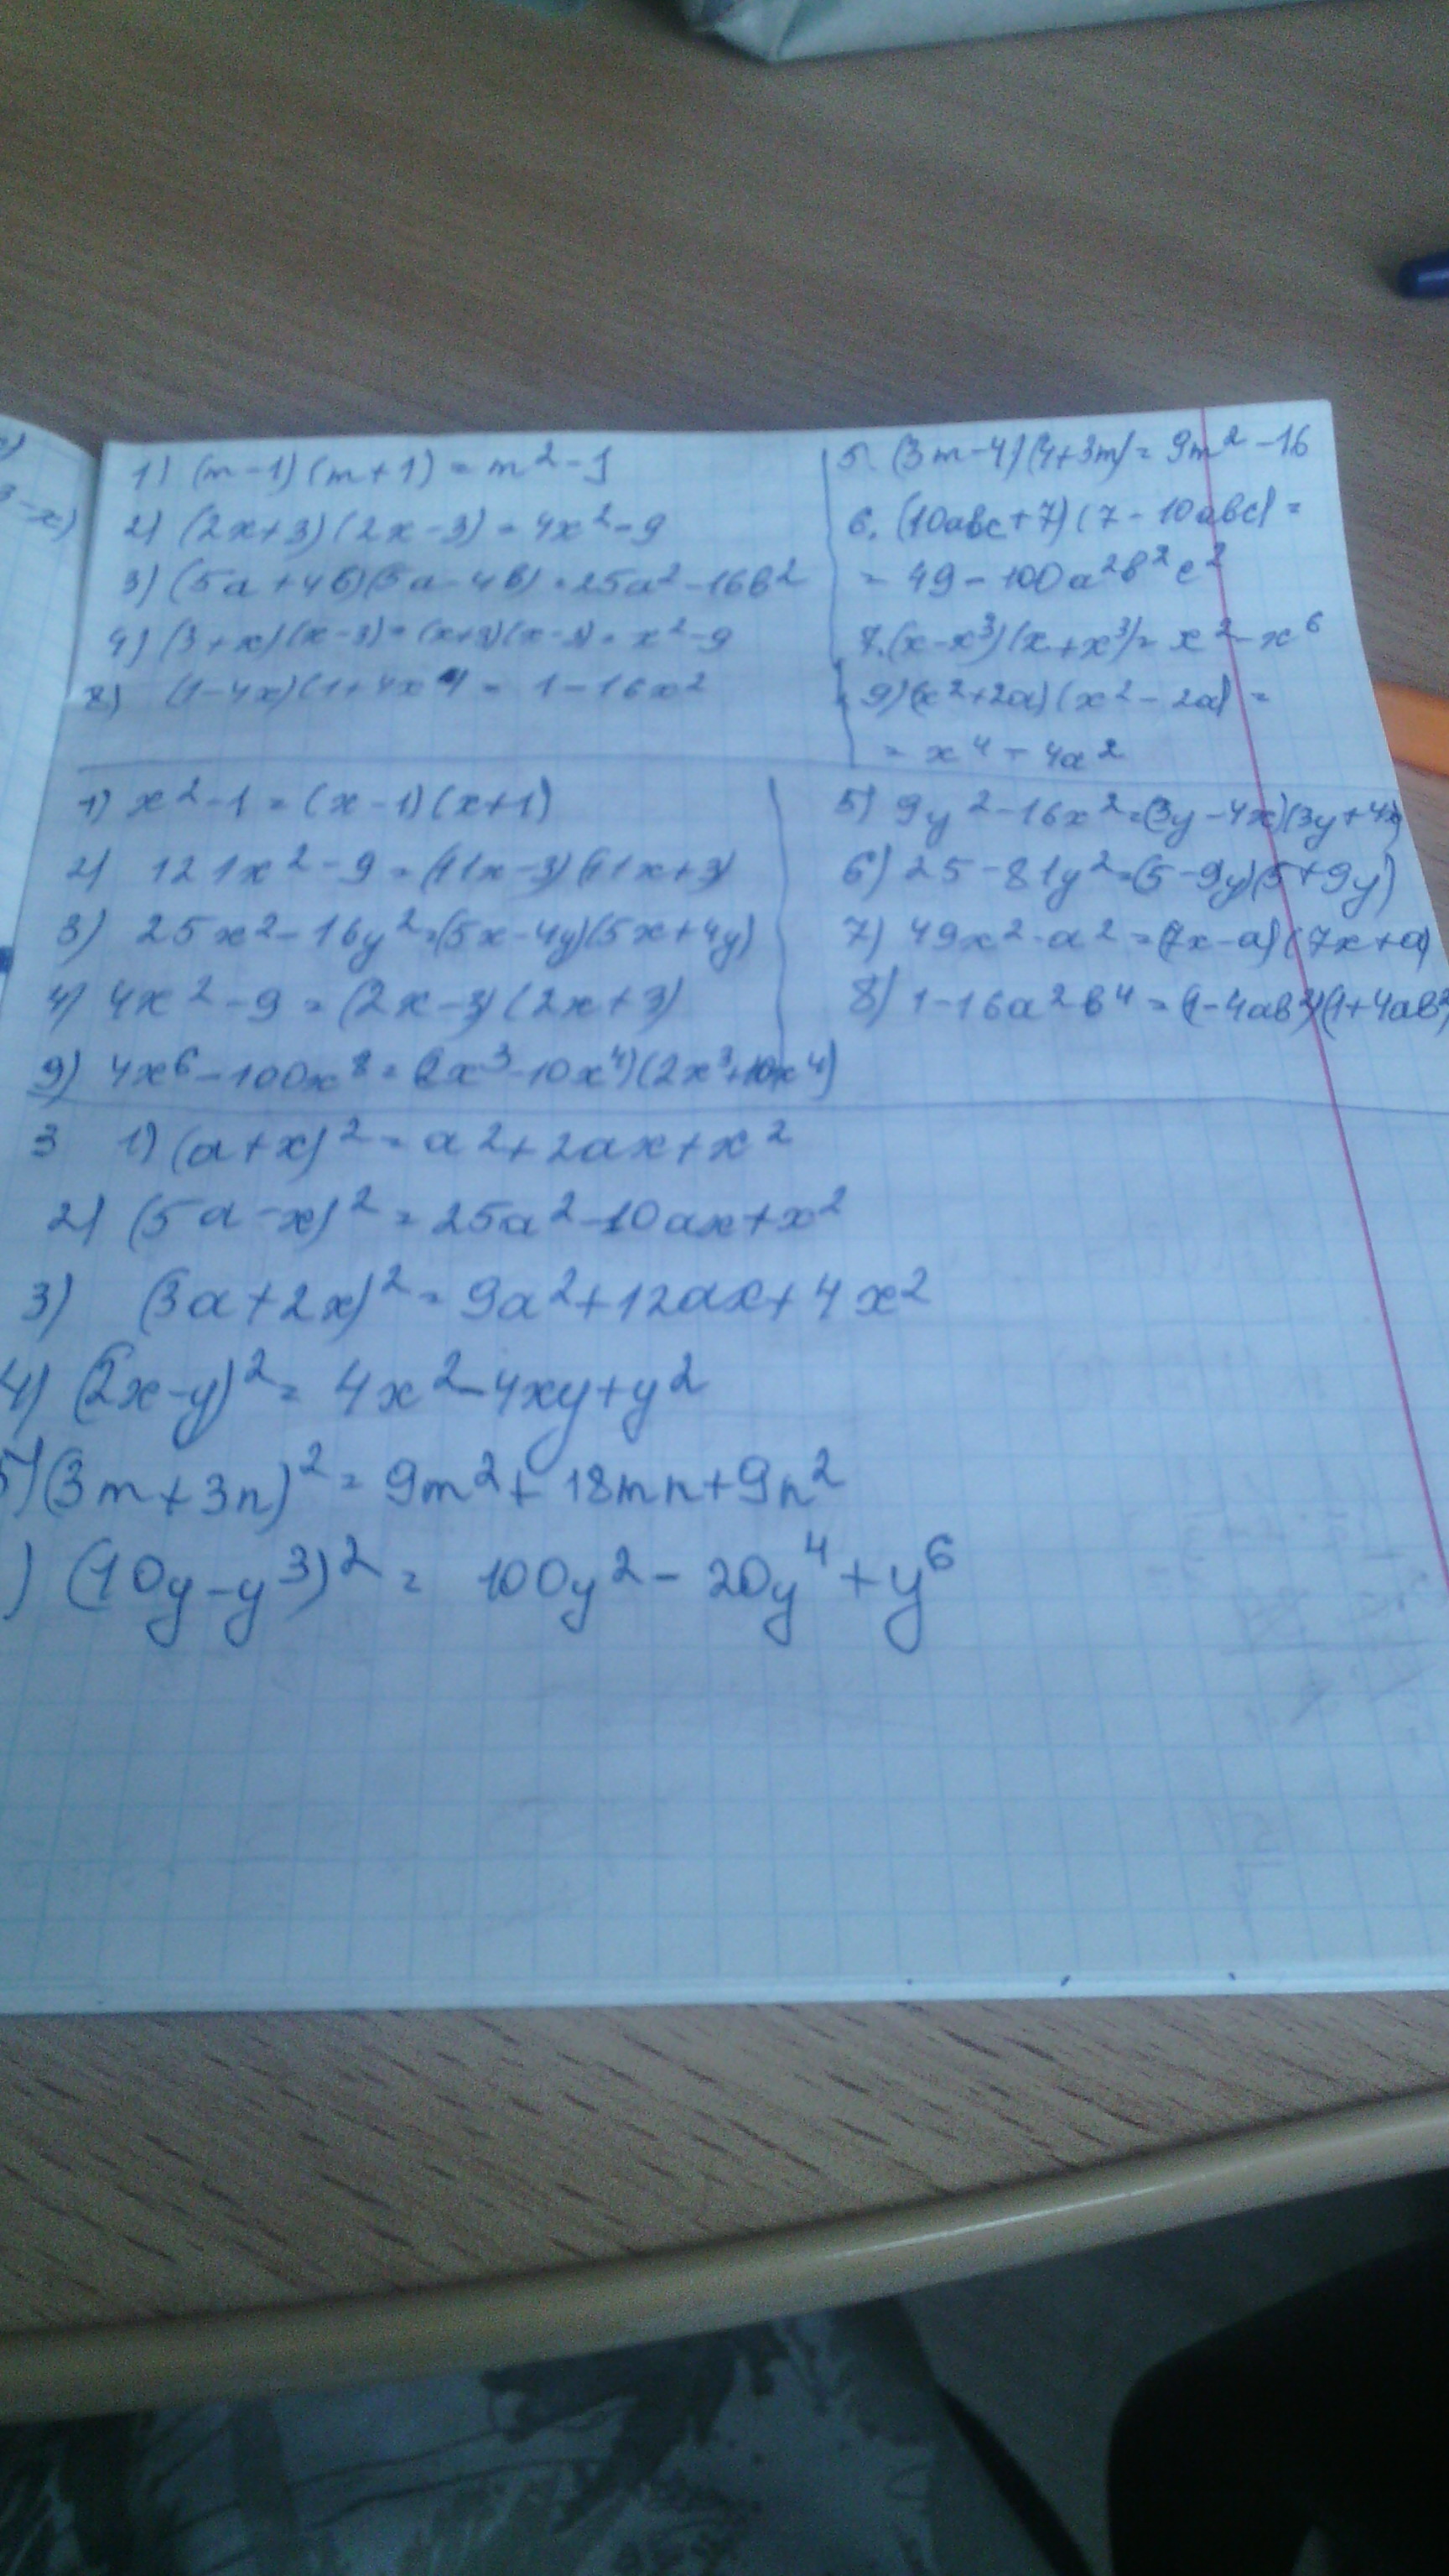 1) (m-1)(m+1) = m²-1
2) (2x+3)(2x-3) = 4x²-9
3) (5a+4б)(5a-4в) = 25a²-16в²
4) (3+x)(x-3) = (x+3)(x-3) = x²-9
8) (1-4x)(1+4x) = 1-16x²
5. (3m-4)(4+3m) = 9m²-16
6. (10авс+7)(7-10авс) =
= 49-100а²в²с²
7. (x-x³)(x+x³) = x²-x⁶
9) (x²+2a)(x²-2a) =
= x⁴-4a²
1) x²-1 = (x-1)(x+1)
2) 121x²-9 = (11x-3)(11x+3)
3) 25x²-16y² = (5x-4y)(5x+4y)
4) 4x²-9 = (2x-3)(2x+3)
9) 4x⁶-100x⁸ = (2x³-10x⁴)(2x³+10x⁴)
5) 9y²-16x² = (3y-4x)(3y+4x)
6) 25-81y² = (5-9y)(5+9y)
7) 49x²-a² = (7x-a)(7x+a)
8) 1-16а²в⁴ = (1-4ав²)(1+4ав²
3 1) (a+x)² = a²+2ax+x²
2) (5a-x)² = 25a²-10ax+x²
3) (3a+2x)² = 9a²+12ax+4x²
4) (2x-y)² = 4x²-4xy+y²
5) (3m+3n)² = 9m²+18mn+9n²
) (10y-y³)² = 100y²-20y⁴+y⁶